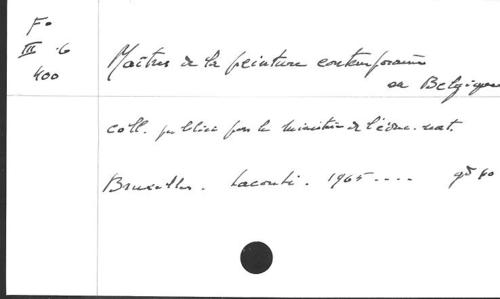 Fo
III .6
400
Maîtres de la peinture contemporaine
en Belgique
coll. publiée par le ministère de l'éduc. nat.
Bruxelles. Laconti. 1965....